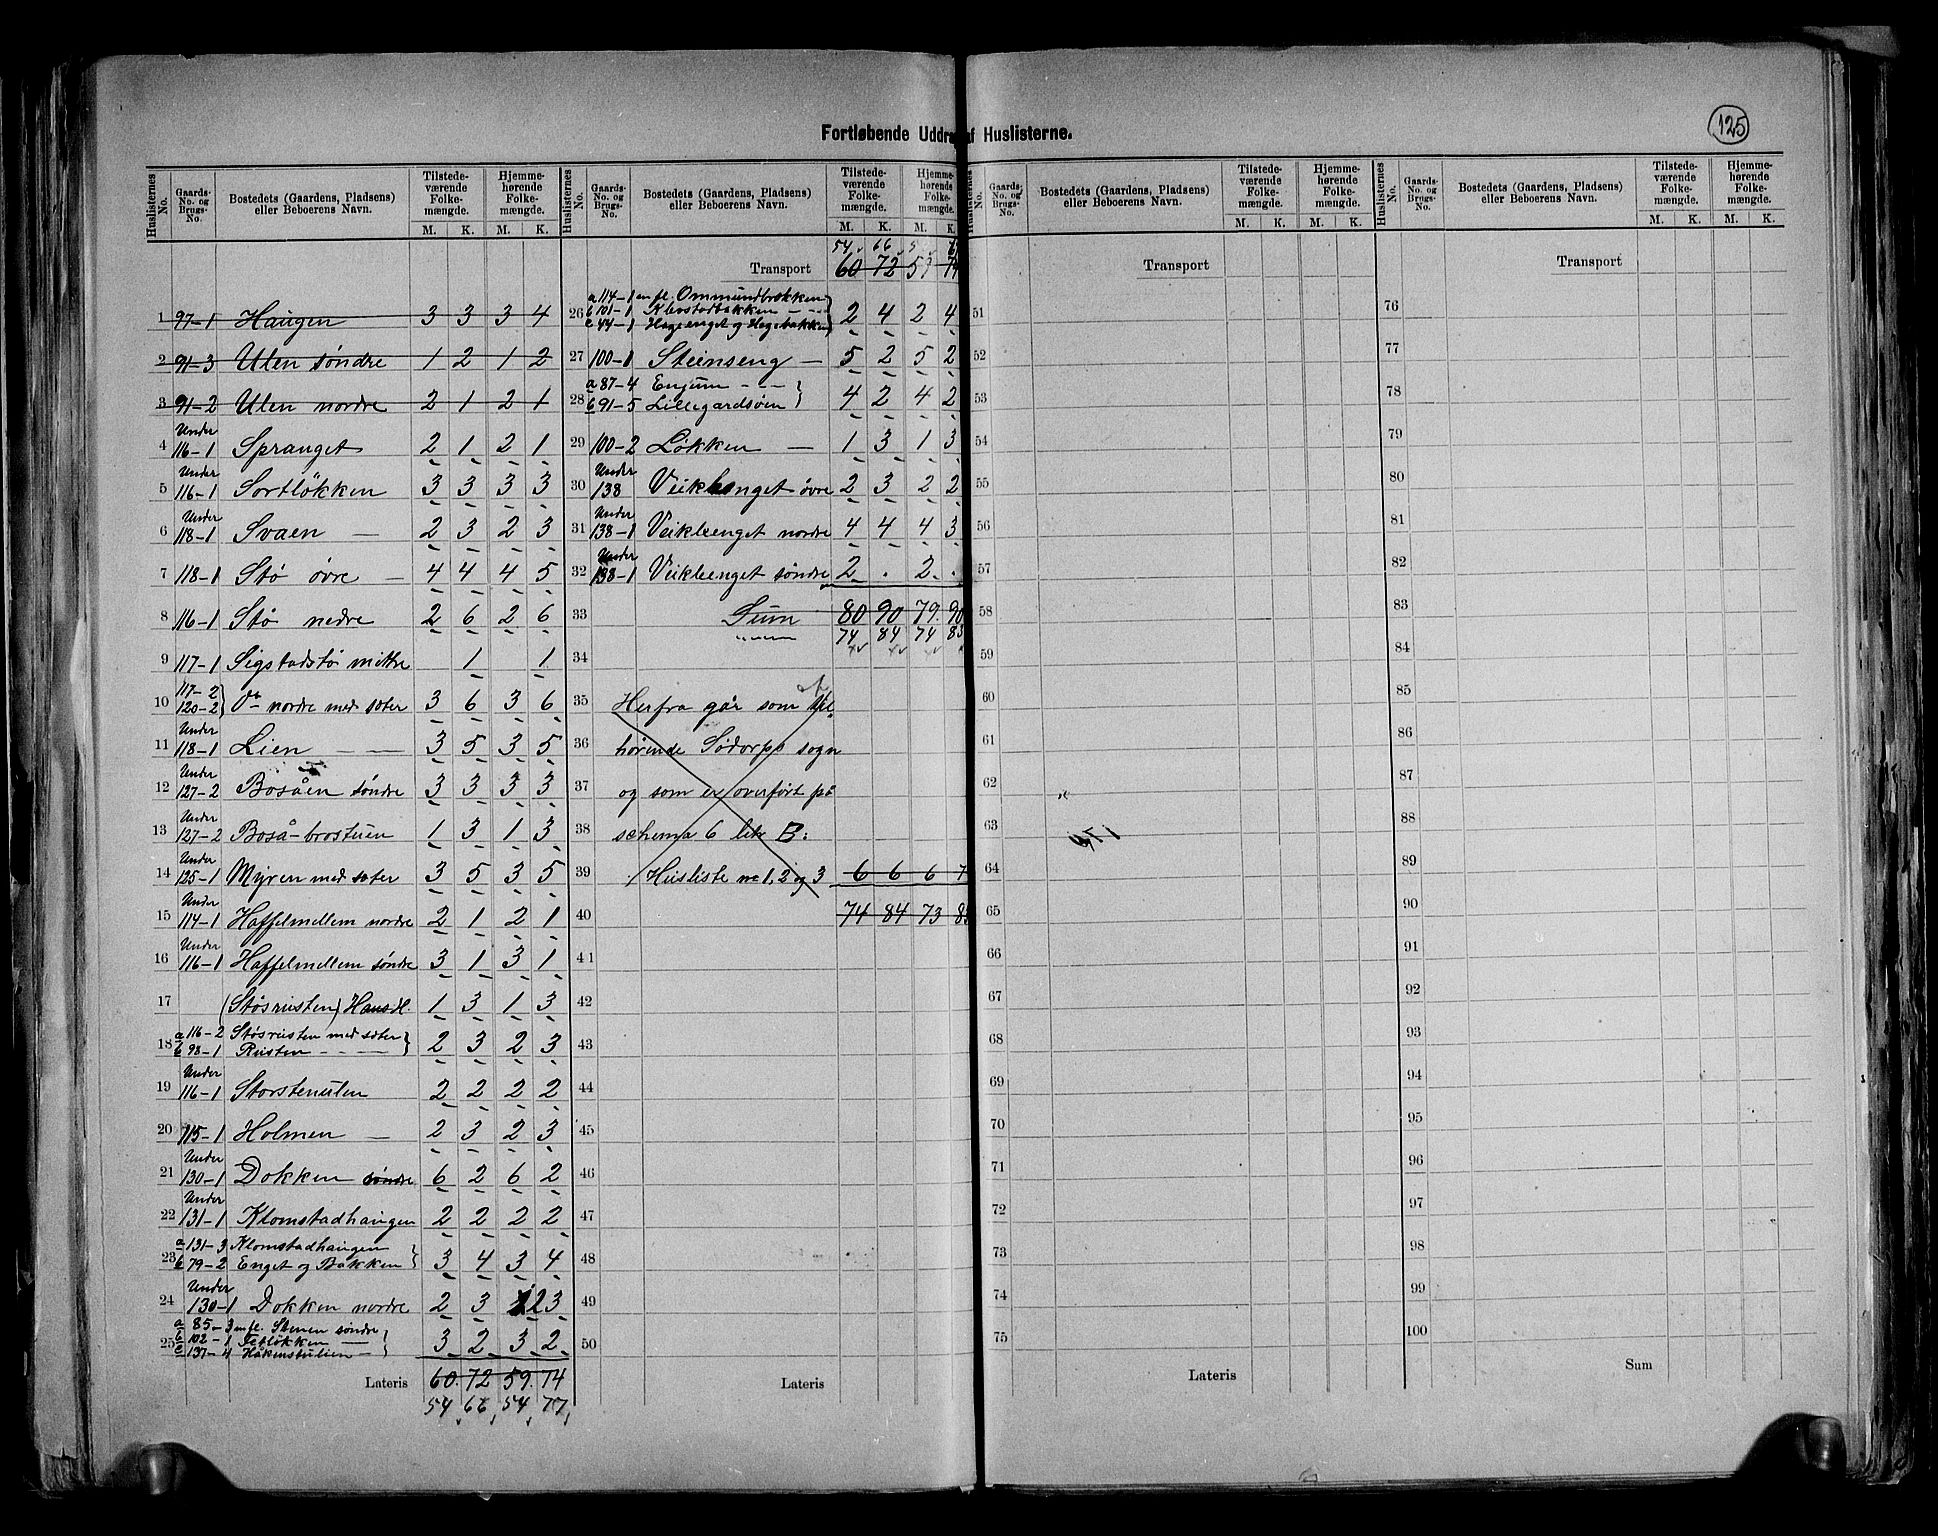 125
Fortløbende Uddrag af Huslisterne.
Huslisternes No. Gaards-No. og Brugs-No. Bostedets (Gaardens, Pladsens) eller Beboerens Navn. Tilstede-værende Folke-mængde. M. K. Hjemme-hørende Folke-mængde. M. K.
1 97-1 Haugen 3 3 3 4
2 91-3 Ulen søndre 1 2 1 2
3 91-2 Ulen nordre 2 1 2 1
4 Under 116-1 Spranget 2 1 2 1
5 Under 116-1 Sortløkken 3 3 3 3
6 Under 118-1 Svaen — 2 3 2 3
7 118-1 Stø øvre — 4 4 4 5
8 116-1 Stø nedre 2 6 2 6
9 117-1 Sigstadstø mittre 1 1
10 117-2 120-2 } Do nordre med sæter 3 6 3 6
11 Under 118-1 Lien — — 3 5 3 5
12 Under 127-2 Bosåen søndre 3 3 3 3
13 Under 127-2 Boså-brostuen 1 3 1 3
14 Under 125-1 Myren med sæter 3 5 3 5
15 Under 114-1 Haffelmellem nordre 2 1 2 1
16 Under 116-1 Haffelmellem søndre 3 1 3 1
17 (Støsrusten) Handl. 1 3 1 3
18 a 116-2 Støsrusten med sæter
b 98-1 Rusten - - - } 2 3 2 3
19 Under 116-1 Storstenulen 2 2 2 2
20 115-1 Holmen — 2 3 2 3
21 Under 130-1 Dokken søndre 6 2 6 2
22 Under 131-1 Klomstadhaugen 2 2 2 2
23 a 131-3 Klomstadhaugen
b 79-2 Enget og Bakken } 3 4 3 4
24 Under 130-1 Dokken nordre 2 3 2 3
25 a 85-3 m fl. Stenen søndre
b 102-1 Tetløkken
c 137-4 Håkenstulien } 3 2 3 2
Lateris 60 72 59 74
54 66 54 77
Huslisternes No. Gaards-No. og Brugs-No. Bostedets (Gaardens, Pladsens) eller Beboerens Navn. Tilstede-værende Folke-mængde. M. K. Hjemme-hørende Folke-mængde. M. K.
54 66 5
Transport 60 72 59 74
26 a 114-1 m fl. Ommundbrækken
b 101-1 Klostadbakken - - -
c 44-1 Hageenget og Hagebakken } 2 4 2 4
27 100-1 Steinseng — 5 2 5 2
28 a 87-4 Enjum - - -
b 91-5 Lillegardsøen } 4 2 4 2
29 100-2 Løkken — 1 3 1 3
30 Under 138 Veikleenget øvre 2 3 2 2
31 Under 138-1 Veikleenget nordre 4 4 4 3
32 Under 138-1 Veikleenget søndre 2 . 2 .
33 Sum 80 90 79 90
74 84 74 83
34
35 Herfra går som til-
36 hørende Sødorps sogn
37 og som er overført på
38 schema 6 litr B:
39 Husliste no 1, 2 og 3 6 6 6 7
40 74 84 73 83
41
42
43
44
45
46
47
48
49
50
Lateris
No. Gaards-No. og Brugs-No. Bostedets (Gaardens, Pladsens) eller Beboerens Navn. Tilstede-værende Folke-mængde. M. K. Hjemme-hørende Folke-mængde. M. K.
Transport
51
52
53
54
55
56
57
58
59
60
61
62
63
64
65
66
67
68
69
70
71
72
73
74
75
Lateris
Huslisternes No. Gaards-No. og Brugs-No. Bostedets (Gaardens, Pladsens) eller Beboerens Navn. Tilstede-værende Folke-mængde. M. K. Hjemme-hørende Folke-mængde. M. K.
Transport
76
77
78
79
80
81
82
83
84
85
86
87
88
89
90
91
92
93
94
95
96
97
98
99
100
Sum